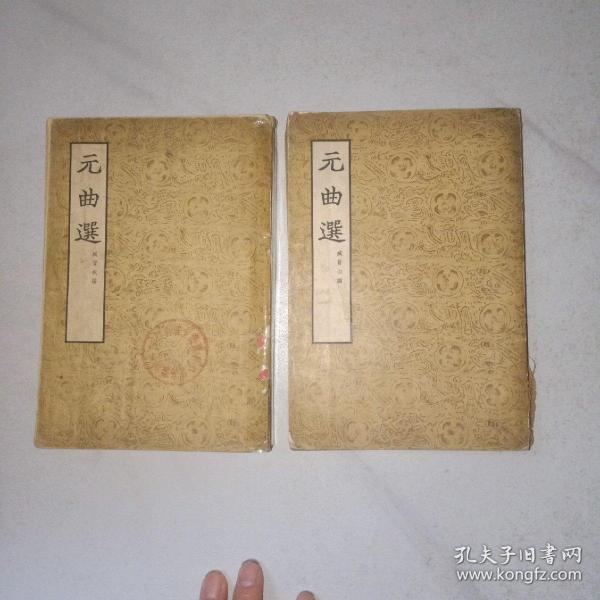 元曲選
臧晉叔編
元曲選
臧晉叔編
孔夫子旧書网
www.kongfz.com